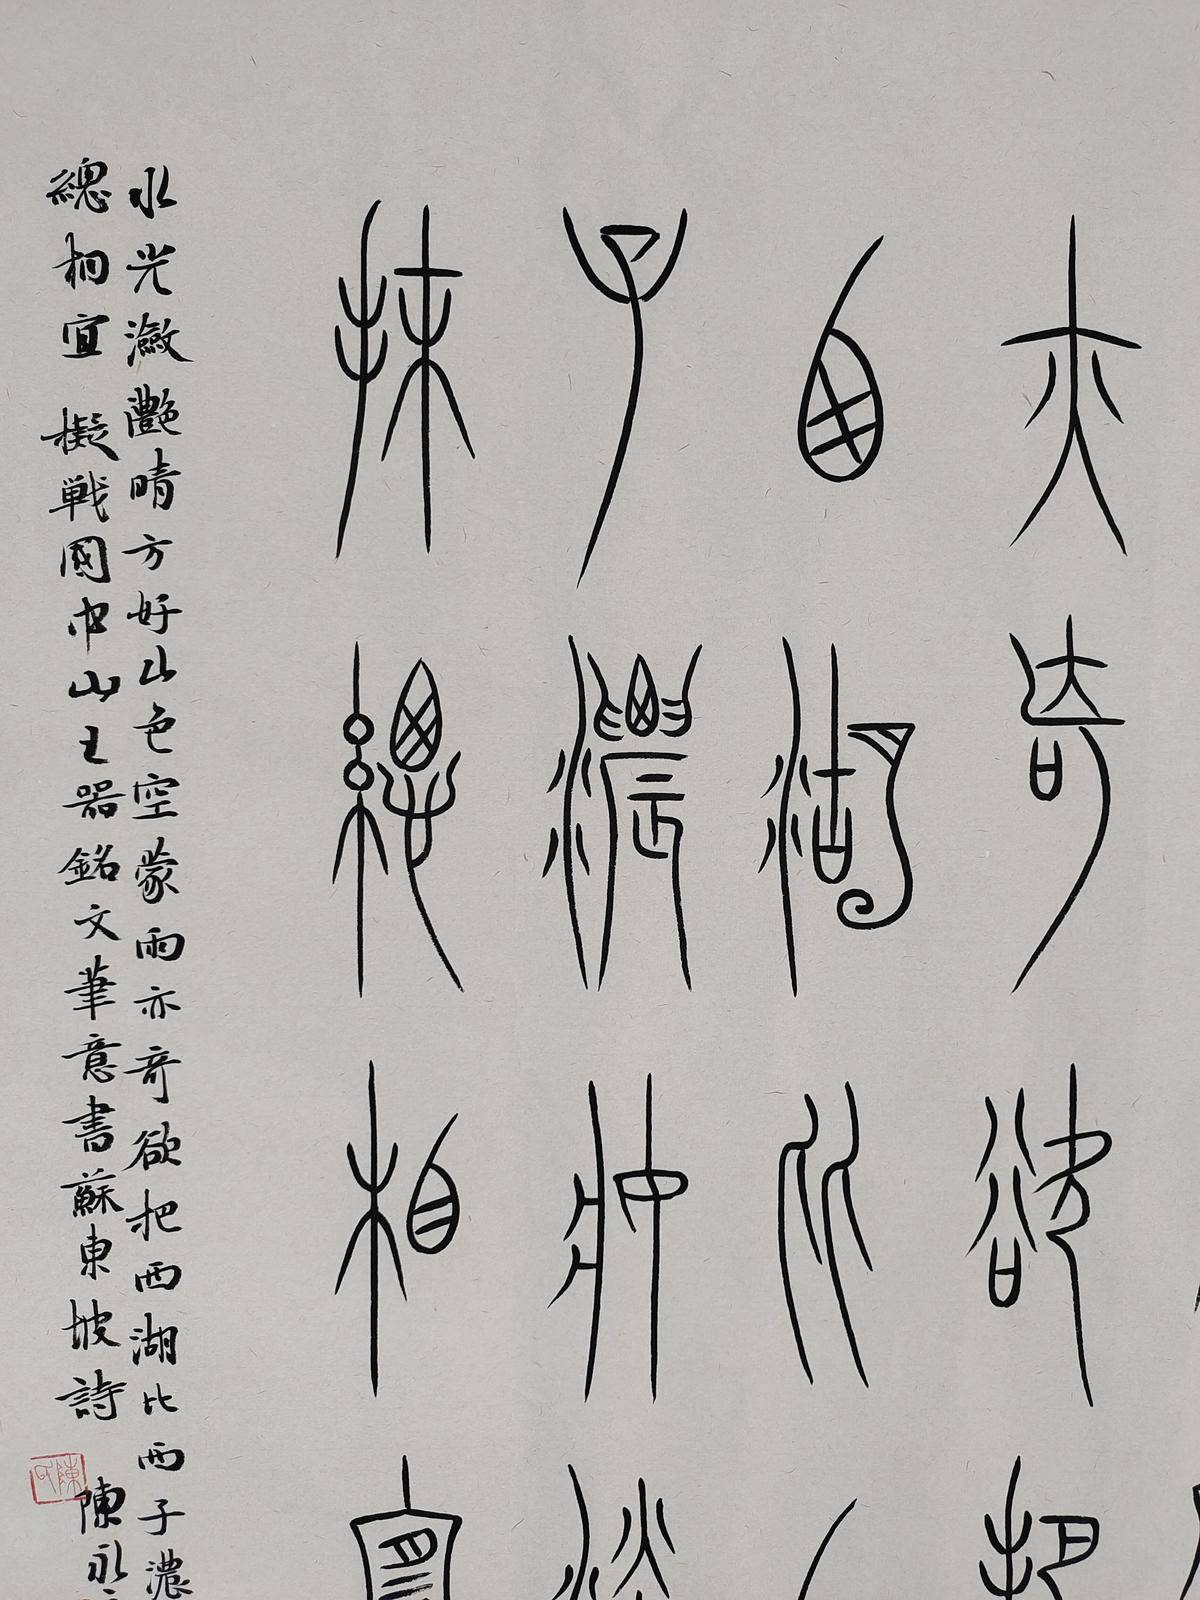 亦奇欲把
西湖比西
子濃妝淡
抹總相宜
水光瀲灧晴方好山色空蒙雨亦奇欲把西湖比西子濃
總相宜 擬戰國中山王器銘文筆意書蘇東坡詩 陳永
陳